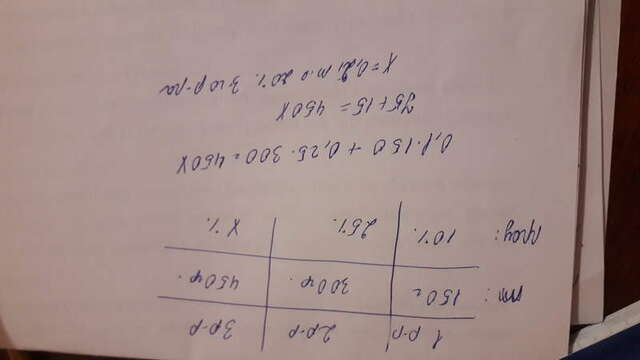 1 р-р 2р-р 3р-р
m: 150г 300гр. 450гр.
проц: 10%. 25%. X%.
0,1·150 + 0,25·300=450X
75+15=450X
X=0,2, т.е 20%. 3-го р-ра